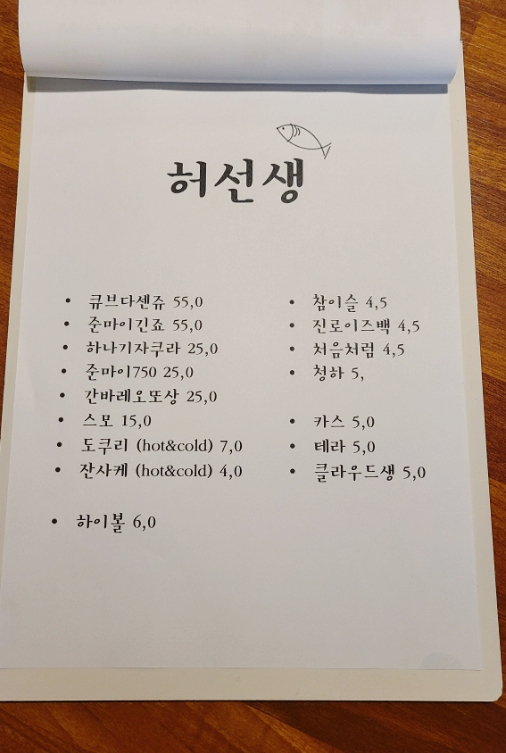 허선생
• 큐브다센쥬 55,0
• 준마이긴죠 55,0
• 하나기자쿠라 25,0
• 준마이750 25,0
• 간바레오또상 25,0
• 스모 15,0
• 도쿠리 (hot&cold) 7,0
• 잔사케 (hot&cold) 4,0
• 하이볼 6,0
• 참이슬 4,5
• 진로이즈백 4,5
• 처음처럼 4,5
• 청하 5,
• 카스 5,0
• 테라 5,0
• 클라우드생 5,0